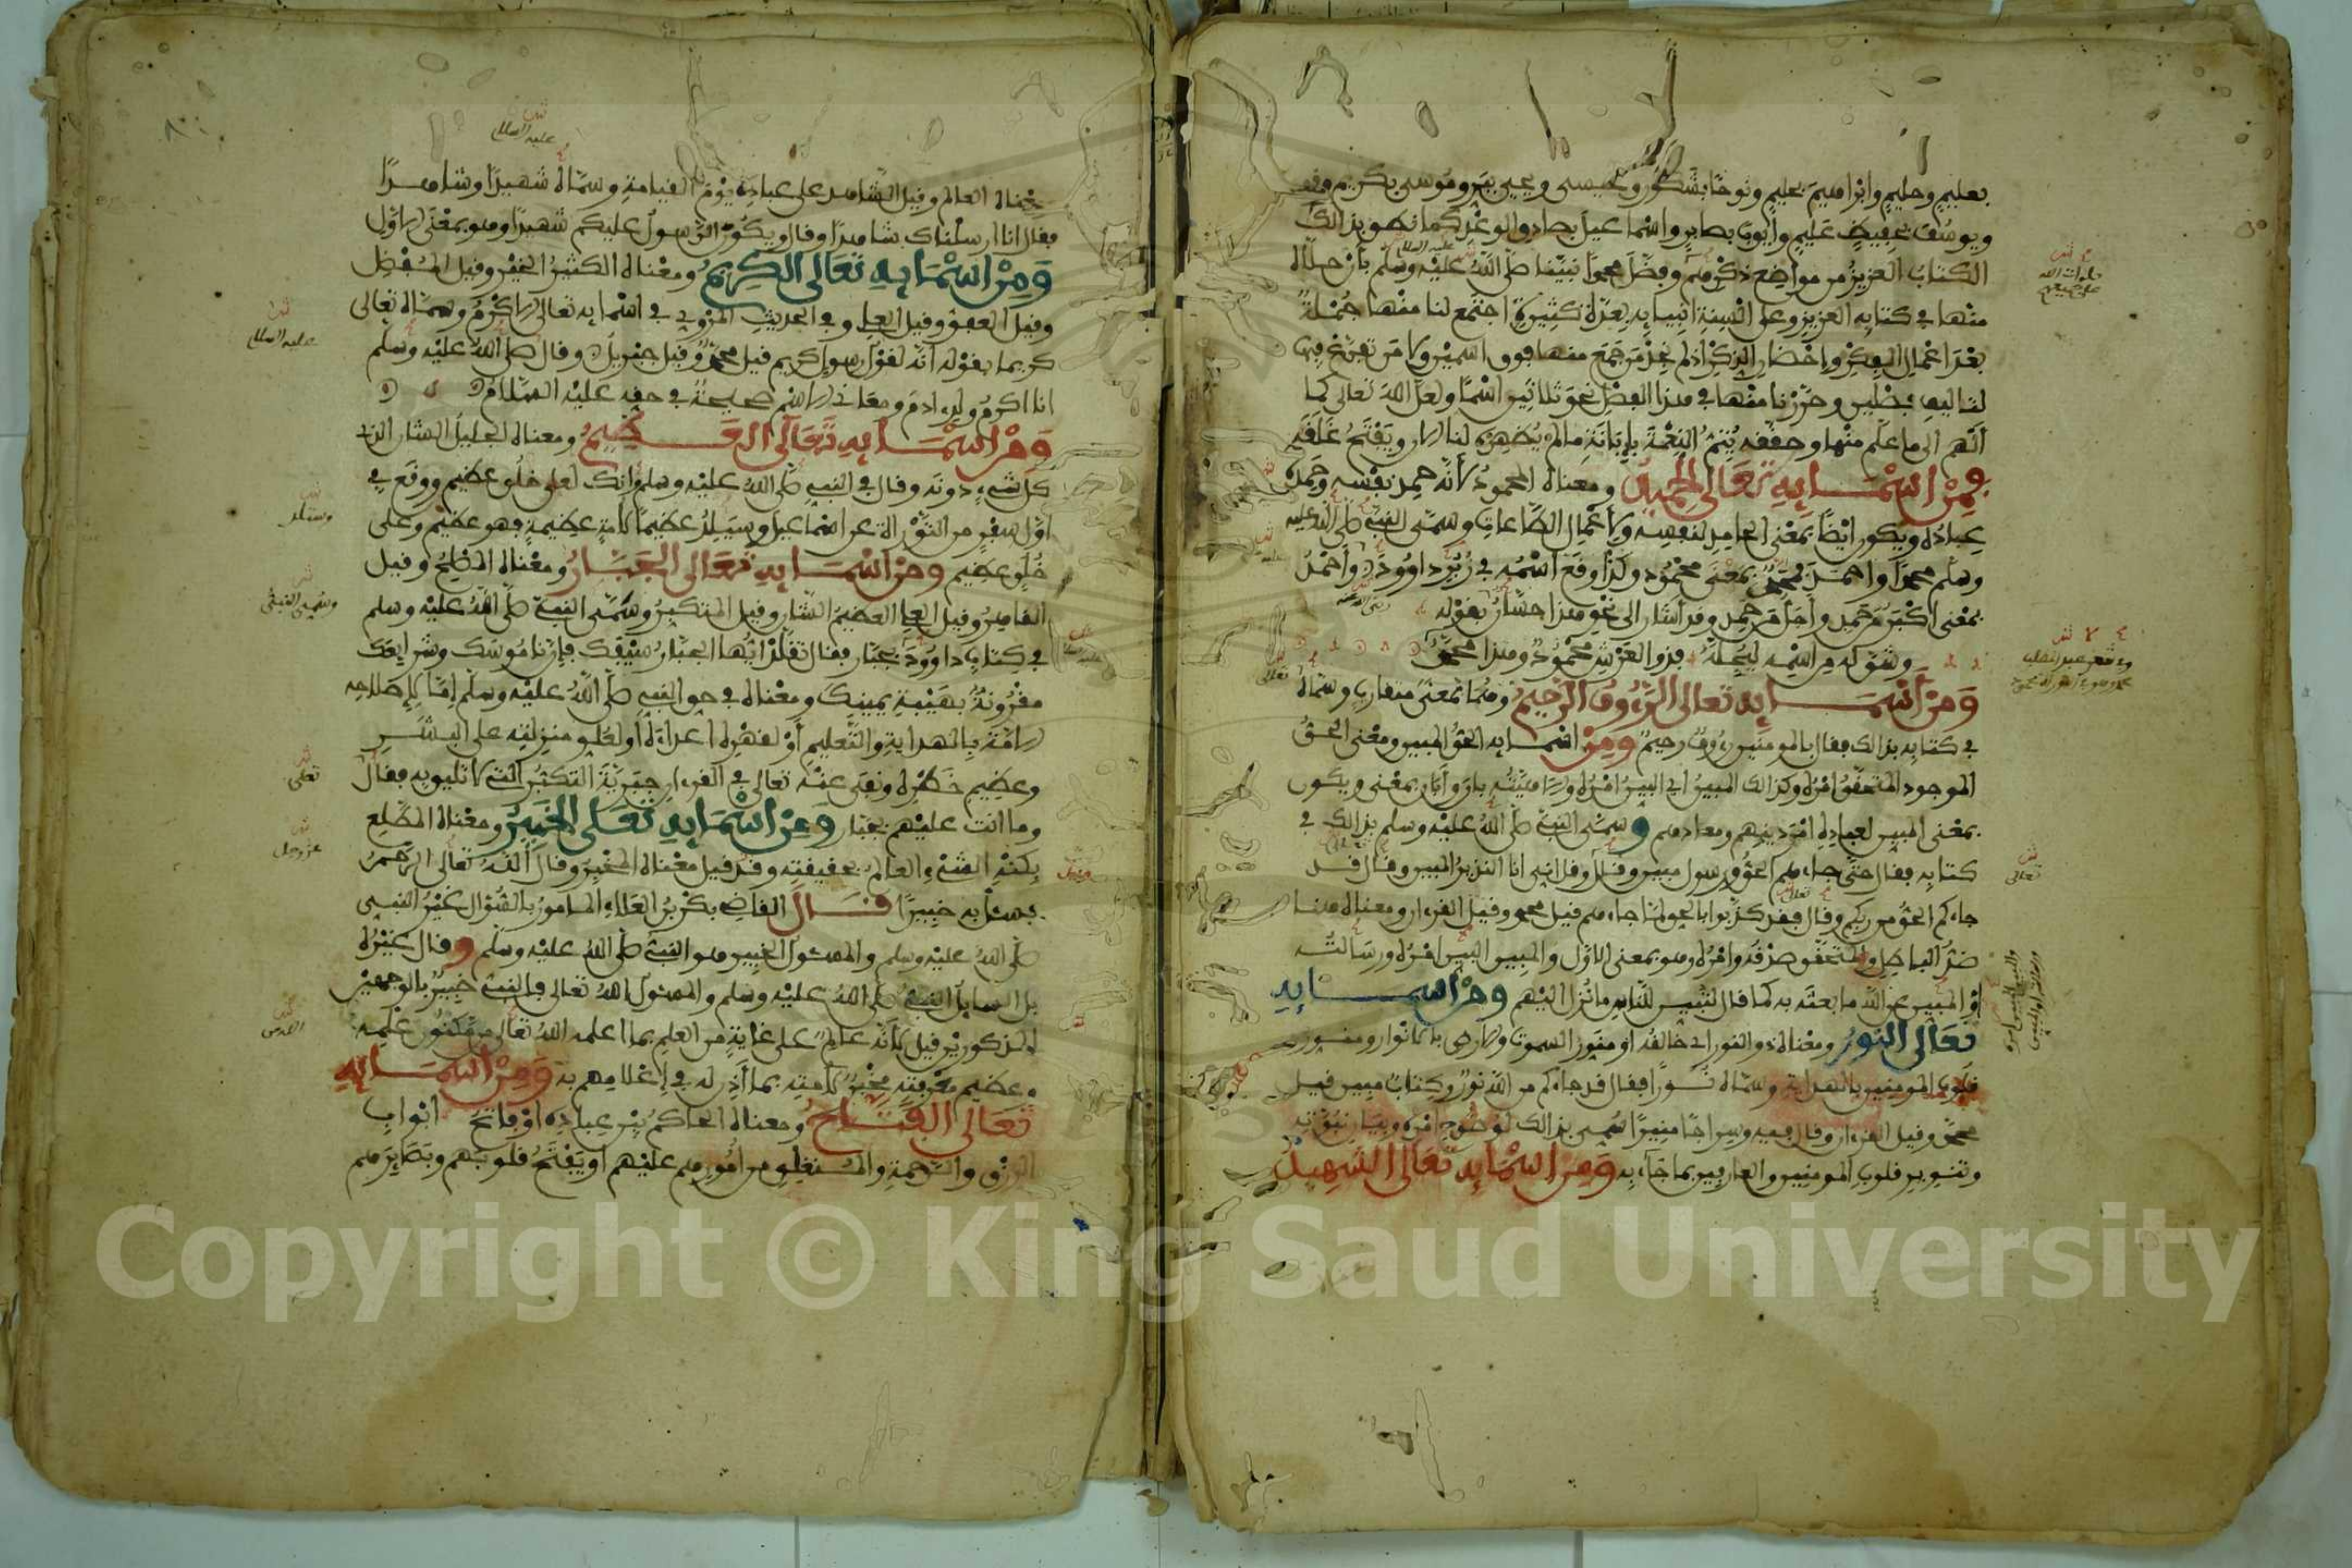 بعليم وحليم وابراهيم بحليم ونوحا بشكور وعيسى ويحيى ببر وموسى بكريم وقوي
ويوسف بحفيظ عليم وأيوب بصابر واسماعيل بصادق الوعد كما نطق بذالك
الكتاب العزيز من مواضع ذكرهم وفضل محمدا نبينا صلى الله عليه وسلم بأن حلاه
منها في كتابه العزيز وعلى ألسنة انبيايه بعدة كثيرة اجتمع لنا منها جملة
بعد اعمال الفكر وإحضار الذكر اذ لم نجد من جمع منها فوق اسمين ولا من تفرغ فيها
لتاليف فصلين وحررنا منها في هذا الفصل نحو ثلاثين اسما ولعل الله تعالى كما
ألهم الى ما علم منها وحققه يتم النعمة بإبانة ما لم يظهره لنا الان ويفتح غلقه
فمن اسمايه تعالى الحميد ومعناه المحمود لأنه حمد نفسه وحمده
عباده ويكون ايضا بمعنى الحامد لنفسه ولأعمال الطاعات وسمى النبي صلى الله عليه
وسلم محمدا واحمد فمحمد بمعنى محمود وكذا وقع اسمه في زبر داوود وأحمد
بمعنى أكبر من حمد وأجل من حمد وقد أشار الى نحو هذا حسان بقوله
وشق له من اسمه ليجله فذو العرش محمود وهذا محمد
ومن أسمايه تعالى الرءوف الرحيم وهما بمعنى متقارب وسماه
في كتابه بذالك فقال بالمومنين رءوف رحيم ومن اسمايه الحق المبين ومعنى الحق
الموجود المتحقق امره وكذالك المبين أي البين امره والاهيته بان وأبان بمعنى ويكون
بمعنى المبين لعباده امر دينهم ومعادهم وسمى النبي صلى الله عليه وسلم بذالك في
كتابه فقال حتى جاءهم الحق ورسول مبين وقال وقل اني انا النذير المبين وقال قد
جاءكم الحق من ربكم وقال فقد كذبوا بالحق لما جاءهم قيل محمد وقيل القرءان ومعناه هنا
ضد الباطل والمتحقق صدقه وامره وهو بمعنى الاول والمبين البين امره ورسالته
أو المبين عن الله ما بعثه به كما قال لتبين للناس ما نزل اليهم ومن أسمايه
تعالى النور ومعناه ذو النور اي خالقه او منور السموت والارض بالانوار ومنور
قلوب المومنين بالهداية وسماه نورا فقال قد جاءكم من الله نور وكتاب مبين قيل
محمد وقيل القرءان وقال فيه وسراجا منيرا سمي بذالك لوضوح امره وبيان نبوته
وتنوير قلوب المومنين والعارفين بما جآء به ومن اسمايه تعالى الشهيد
صلوات الله
على جميعهم
تعالى
عليه السلام
معناه العالم وقيل الشاهد على عباده يوم القيامة وسماه شهيدا وشاهدا
فقال انا ارسلناك شاهدا وقال ويكون الرسول عليكم شهيدا وهو بمعنى الاول
ومن اسمايه تعالى الكريم ومعناه الكثير الخير وقيل المفضل
وقيل العفو وقيل العلي وفي الحديث المروي في اسمايه تعالى الاكرم وسماه تعالى
كريما بقوله انه لقول رسول كريم قيل محمد وقيل جبريل وقال صلى الله عليه وسلم
انا اكرم ولد ادم ومعاني الاسم صحيحة في حقه عليه السلام
ومن اسمايه تعالى العظيم ومعناه الجليل الشان الذي
كل شيء دونه وقال في النبي صلى الله عليه وسلم وانك لعلى خلق عظيم ووقع في
اول سفر من التورية عن اسماعيل وسيلد عظيما لامة عظيمة فهو عظيم وعلى
خلق عظيم ومن اسمايه تعالى الجبار ومعناه المصلح وقيل
القاهر وقيل العلي العظيم الشان وقيل المتكبر وسمي النبي صلى الله عليه وسلم
في كتاب داوود بجبار فقال تقلد أيها الجبار سيفك فإن ناموسك وشرايعك
مقرونة بهيبة يمينك ومعناه في حق النبي صلى الله عليه وسلم إما لإصلاحه
الامة بالهداية والتعليم أو لقهره اعداءه أو لعلو منزلته على البشر
وعظيم خطره ونفى عنه تعالى في القرءان جبرية التكبر التي لا تليق به فقال
وما انت عليهم بجبار ومن اسمايه تعالى الخبير ومعناه المطلع
بكنه الشيء والعالم بحقيقته وقد قيل معناه المخبر وقال الله تعالى الرحمن
فسئل به خبيرا قال القاضي بكر بن العلاء المامور بالسؤال غير النبي
صلى الله عليه وسلم والمسئول الخبير هو النبي صلى الله عليه وسلم وقال غيره
بل السايل النبي صلى الله عليه وسلم والمسئول الله تعالى فالنبي خبير بالوجهين
المذكورين قيل لأنه عالم على غاية من العلم بما اعلمه الله تعالى من مكنون علمه
وعظيم معرفته مخبر لامته بما أذن له في إعلامهم به ومن اسمايه
تعالى الفتاح ومعناه الحاكم بين عباده او فاتح ابواب
الرزق والرحمة والمنغلق من امورهم عليهم او يفتح قلوبهم وبصايرهم
عليه السلام
وسلم
وسمي النبي
تعلى
عز وجل
Copyright © King Saud University